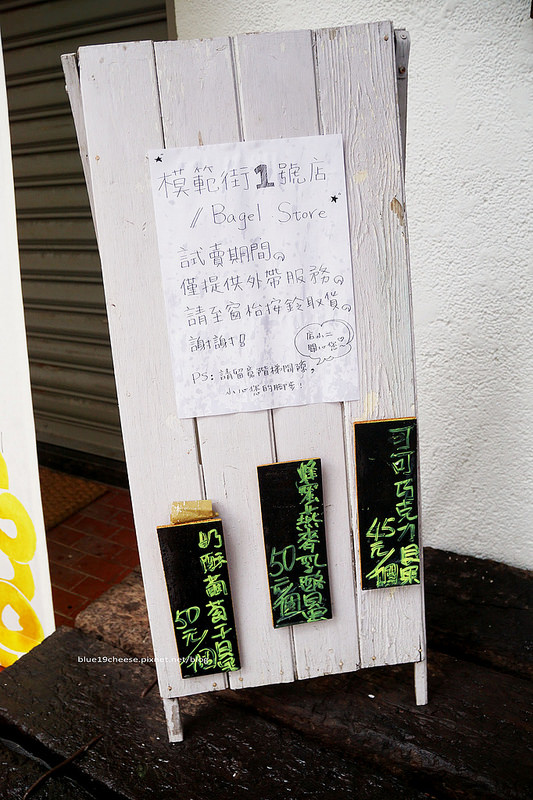 模範街1號店
// Bagel Store
試賣期間。
僅提供外帶服務。
請至窗怡按鈴取貨。
謝謝!
店小二
關心您
PS:請留意階梯間隙,
小心您的腳步!
可可巧克力貝果
45元/個
蜂蜜燕麥乳酪貝果
50元/個
奶酥葡萄干貝果
50元/個
blue19cheese.pixnet.net/blog